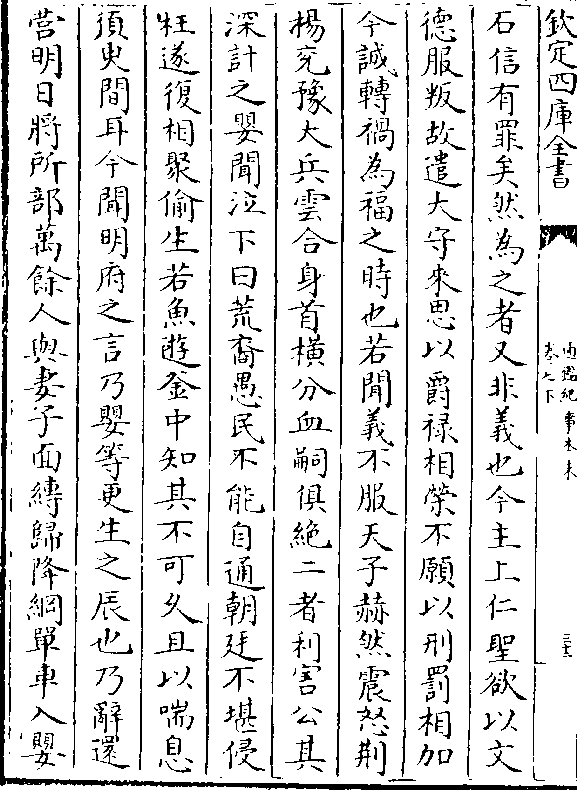 欽定四庫全書
通鑑紀事本末
卷七下
石信有罪矣然為之者又非義也今主上仁聖欲以文
德服叛故遣大守來思以爵禄相榮不願以刑罰相加
今誠轉禍為福之時也若聞義不服天子赫然震怒荆
楊兖豫大兵雲合身首橫分血嗣俱絶二者利害公其
深計之嬰聞泣下曰荒裔愚民不能自通朝廷不堪侵
枉遂復相聚偷生若魚遊釡中知其不可乆且以喘息
須臾間耳今聞明府之言乃嬰等更生之辰也乃辭還
營明日將所部萬餘人與妻子面縛歸降綱單車入嬰